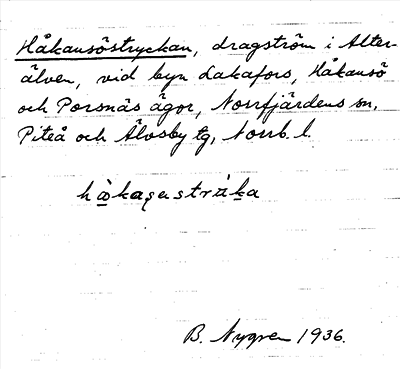 Håkansöstryckan, dragström i Alter-
älven, vid byn Lakafors, Håkansö
och Porsnäs ägor, Norrfjärdens sn,
Piteå och Älvsby tg, Norrb. l.
B. Nygren 1936.